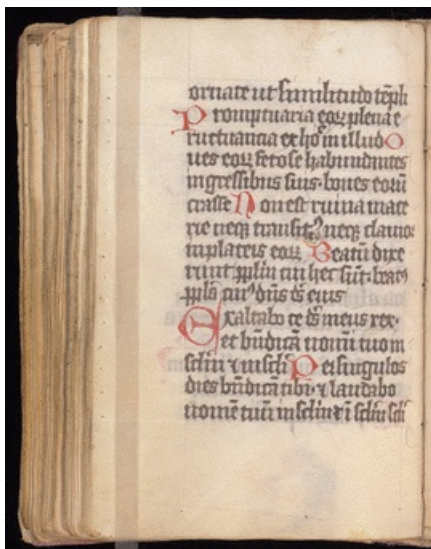 ornate ut similitudo tēpli
Promptuaria eoꝝ plena e
ructuancia ex hoͨ in illud O
ues eoꝝ fetose habundantes
in gressibus suis · boues eoꝝ
crasse Non est ruina mace
rie neqꝫ transitꝰ neqꝫ clamor
in plateis eoꝝ Beatū dixe
runt ppl̄m cui hec sūt · beatꝰ
ppl̄s cuiꝰ dn̄s dēs eius
Exaltabo te dēs meus rex ·
et bn̄dicā nomī tuo in
sclm̄ ⁊ in scli Per singulos
dies bn̄dicā tibi · ⁊ laudabo
nomē tuū in sclm̄ ⁊ ī sclm̄ scli